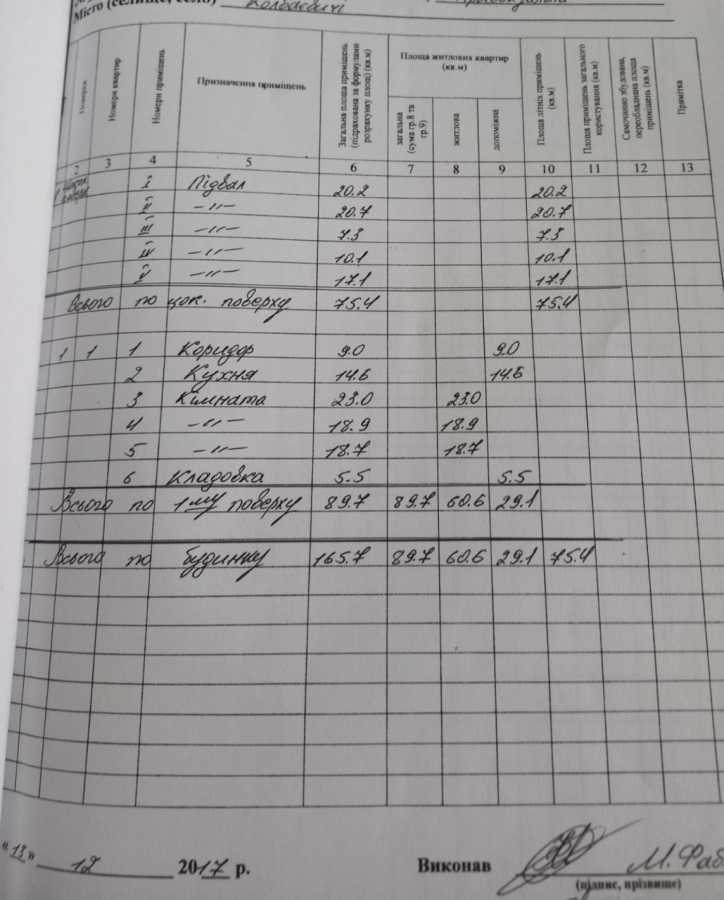 Місто (селище, село) Ковбаєвичі
Номери квартир
Номери приміщень
Призначення приміщень
Загальна площа приміщень (підрахована за формулами розрахунку площ) (кв.м)
Площа житлових квартир (кв.м)
загальна (сума гр.8 та гр.9)
житлова
допоміжна
Площа літніх приміщень (кв.м)
Площа приміщень загального користування (кв.м)
Самочинно збудована, переобладнана площа приміщень (кв.м)
Примітка
2 3 4 5 6 7 8 9 10 11 12 13
I Підвал 20.2 20.2
II -"- 20.7 20.7
III -"- 7.3 7.3
IV -"- 10.1 10.1
V -"- 17.1 17.1
Всього по цок. поверху 75.4 75.4
1 1 1 Коридор 9.0 9.0
2 Кухня 14.6 14.6
3 Кімната 23.0 23.0
4 -"- 18.9 18.9
5 -"- 18.7 18.7
6 Кладовка 5.5 5.5
Всього по 1му поверху 89.7 89.7 60.6 29.1
Всього по будинку 165.7 89.7 60.6 29.1 75.4
"13" 12 2017 р. Виконав М. Фаб
(підпис, прізвище)